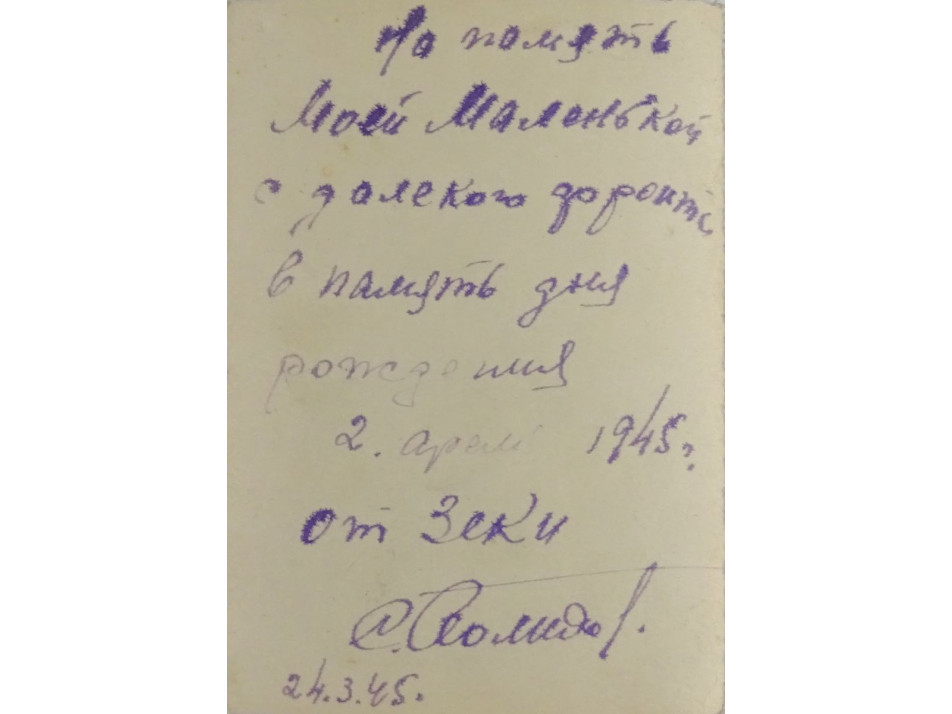 На память
Моей Маленькой
с далекого фронта
в память дня
рождения
2. 1945 г.
от Зеки
24.3.45.